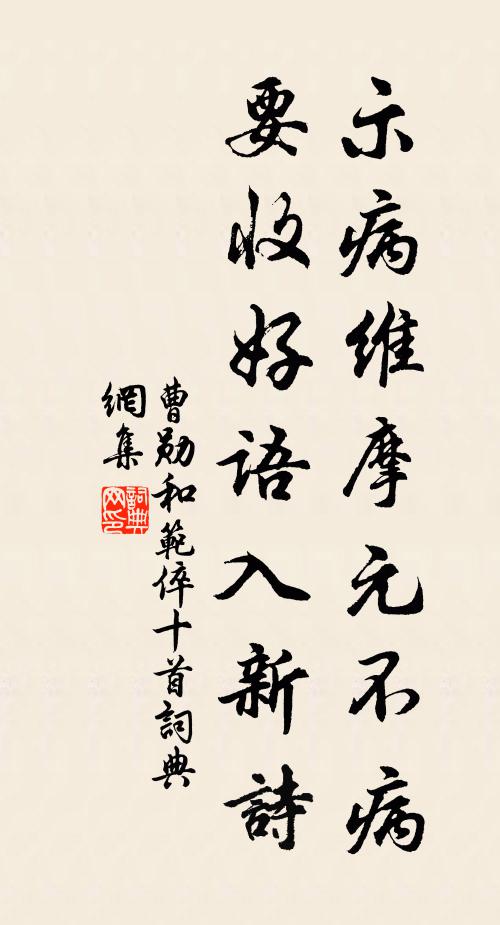 示病維摩元不病
要收好語入新詩
曹勛和範倅十首詞典
網集
詞典
网印